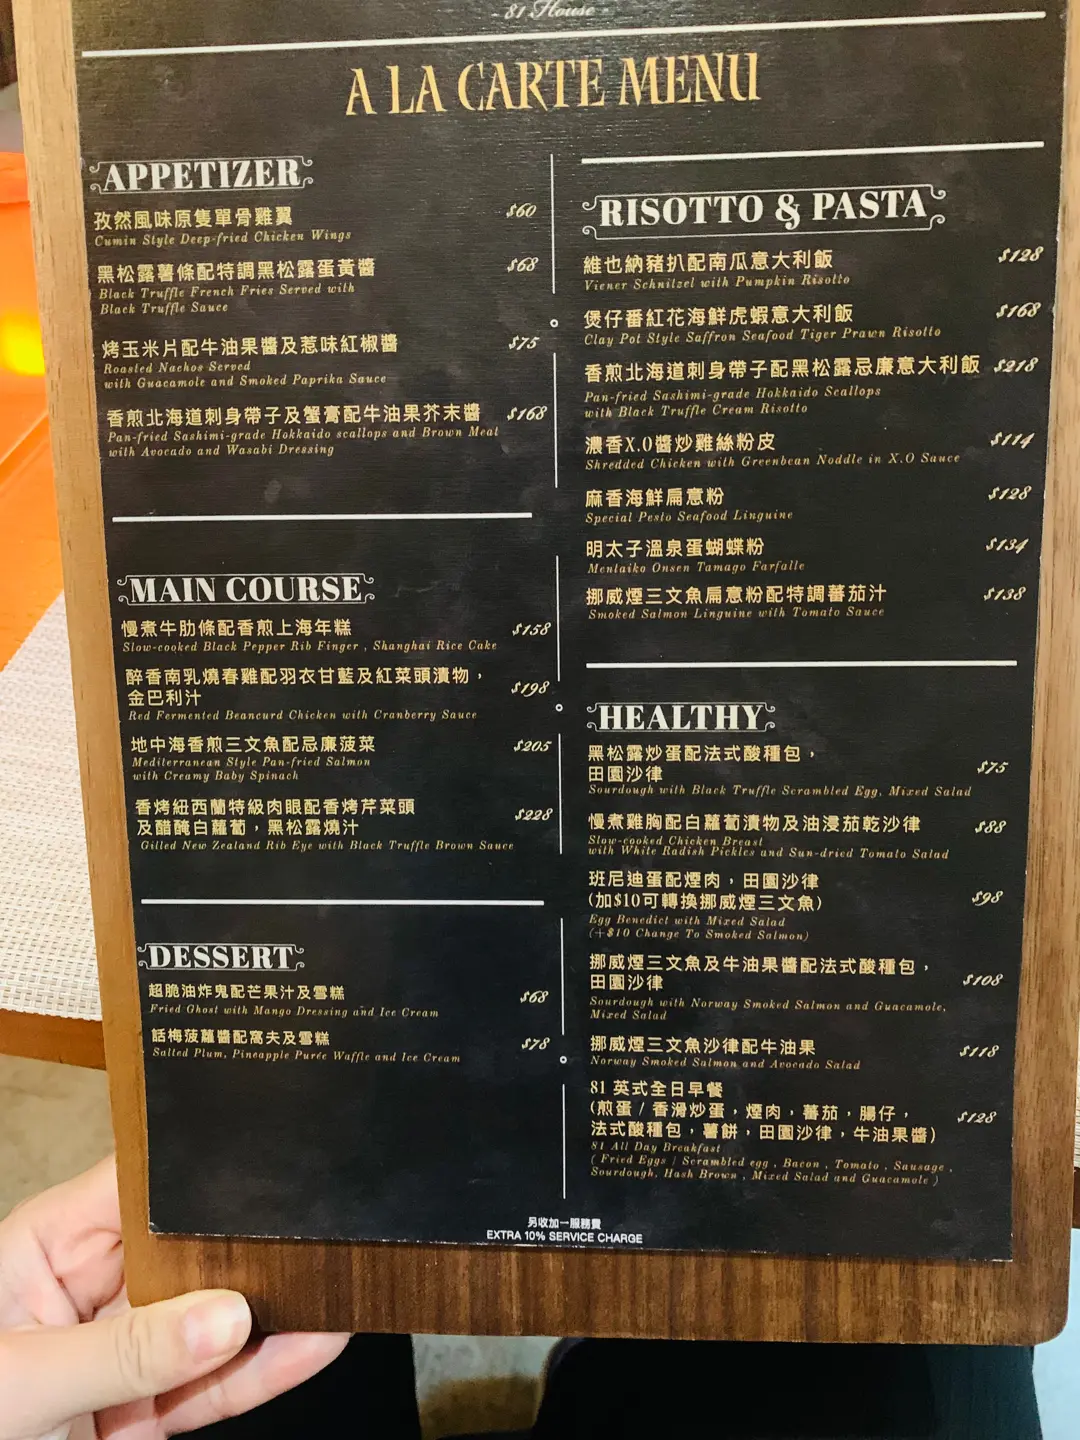 - 81 House -
A LA CARTE MENU
APPETIZER
孜然風味原隻單骨雞翼 $60
Cumin Style Deep-fried Chicken Wings
黑松露薯條配特調黑松露蛋黃醬 $68
Black Truffle French Fries Served with
Black Truffle Sauce
烤玉米片配牛油果醬及惹味紅椒醬 $75
Roasted Nachos Served
with Guacamole and Smoked Paprika Sauce
香煎北海道刺身帶子及蟹膏配牛油果芥末醬 $168
Pan-fried Sashimi-grade Hokkaido scallops and Brown Meat
with Avocado and Wasabi Dressing
MAIN COURSE
慢煮牛肋條配香煎上海年糕 $158
Slow-cooked Black Pepper Rib Finger , Shanghai Rice Cake
醉香南乳燒春雞配羽衣甘藍及紅菜頭漬物，
金巴利汁 $198
Red Fermented Beancurd Chicken with Cranberry Sauce
地中海香煎三文魚配忌廉菠菜 $205
Mediterranean Style Pan-fried Salmon
with Creamy Baby Spinach
香烤紐西蘭特級肉眼配香烤芹菜頭
及醋醃白蘿蔔，黑松露燒汁 $228
Gilled New Zealand Rib Eye with Black Truffle Brown Sauce
DESSERT
超脆油炸鬼配芒果汁及雪糕 $68
Fried Ghost with Mango Dressing and Ice Cream
話梅菠蘿醬配窩夫及雪糕 $78
Salted Plum, Pineapple Purée Waffle and Ice Cream
RISOTTO & PASTA
維也納豬扒配南瓜意大利飯 $128
Viener Schnitzel with Pumpkin Risotto
煲仔番紅花海鮮虎蝦意大利飯 $168
Clay Pot Style Saffron Seafood Tiger Prawn Risotto
香煎北海道刺身帶子配黑松露忌廉意大利飯 $218
Pan-fried Sashimi-grade Hokkaido Scallops
with Black Truffle Cream Risotto
濃香X.O醬炒雞絲粉皮 $114
Shredded Chicken with Greenbean Noddle in X.O Sauce
麻香海鮮扁意粉 $128
Special Pesto Seafood Linguine
明太子溫泉蛋蝴蝶粉 $134
Mentaiko Onsen Tamago Farfalle
挪威煙三文魚扁意粉配特調蕃茄汁 $138
Smoked Salmon Linguine with Tomato Sauce
HEALTHY
黑松露炒蛋配法式酸種包，
田園沙律 $75
Sourdough with Black Truffle Scrambled Egg, Mixed Salad
慢煮雞胸配白蘿蔔漬物及油浸茄乾沙律 $88
Slow-cooked Chicken Breast
with White Radish Pickles and Sun-dried Tomato Salad
班尼迪蛋配煙肉，田園沙律
(加$10可轉換挪威煙三文魚) $98
Egg Benedict with Mixed Salad
(+$10 Change To Smoked Salmon)
挪威煙三文魚及牛油果醬配法式酸種包，
田園沙律 $108
Sourdough with Norway Smoked Salmon and Guacamole,
Mixed Salad
挪威煙三文魚沙律配牛油果 $118
Norway Smoked Salmon and Avocado Salad
81 英式全日早餐
(煎蛋 / 香滑炒蛋，煙肉，蕃茄，腸仔， $128
法式酸種包，薯餅，田園沙律，牛油果醬)
81 All Day Breakfast
( Fried Eggs / Scrambled egg , Bacon , Tomato , Sausage ,
Sourdough, Hash Brown , Mixed Salad and Guacamole )
另收加一服務費
EXTRA 10% SERVICE CHARGE